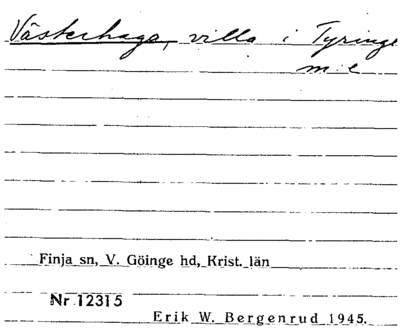 Västerhaga, villa i Tyringe
m:e
Finja sn, V. Göinge hd, Krist. län
Nr 12315
Erik W. Bergenrud 1945.